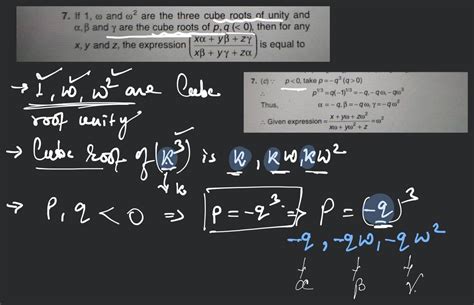 7. If 1, ω and ω² are the three cube roots of unity and
α, β and γ are the cube roots of p, q (< 0), then for any
x, y and z, the expression (xα + yβ + zγ / xβ + yγ + zα) is equal to
7. (d) ∵ p<0, take p = -q³ (q > 0)
∴ p^{1/3} = q(-1)^{1/3} = -q, -qω, -qω²
Thus, α = -q, β = -qω, γ = -qω²
∴ Given expression = x + yω + zω² / xω + yω² + z = ω²
→ 1, ω, ω² are Cube
roof unity
→ Cube roof of (k³) is k, kω, kω²
k
→ P, q < 0 ⇒ P = -q³ ⇒ P = (-q)³
-q, -qω, -qω²
α β γ